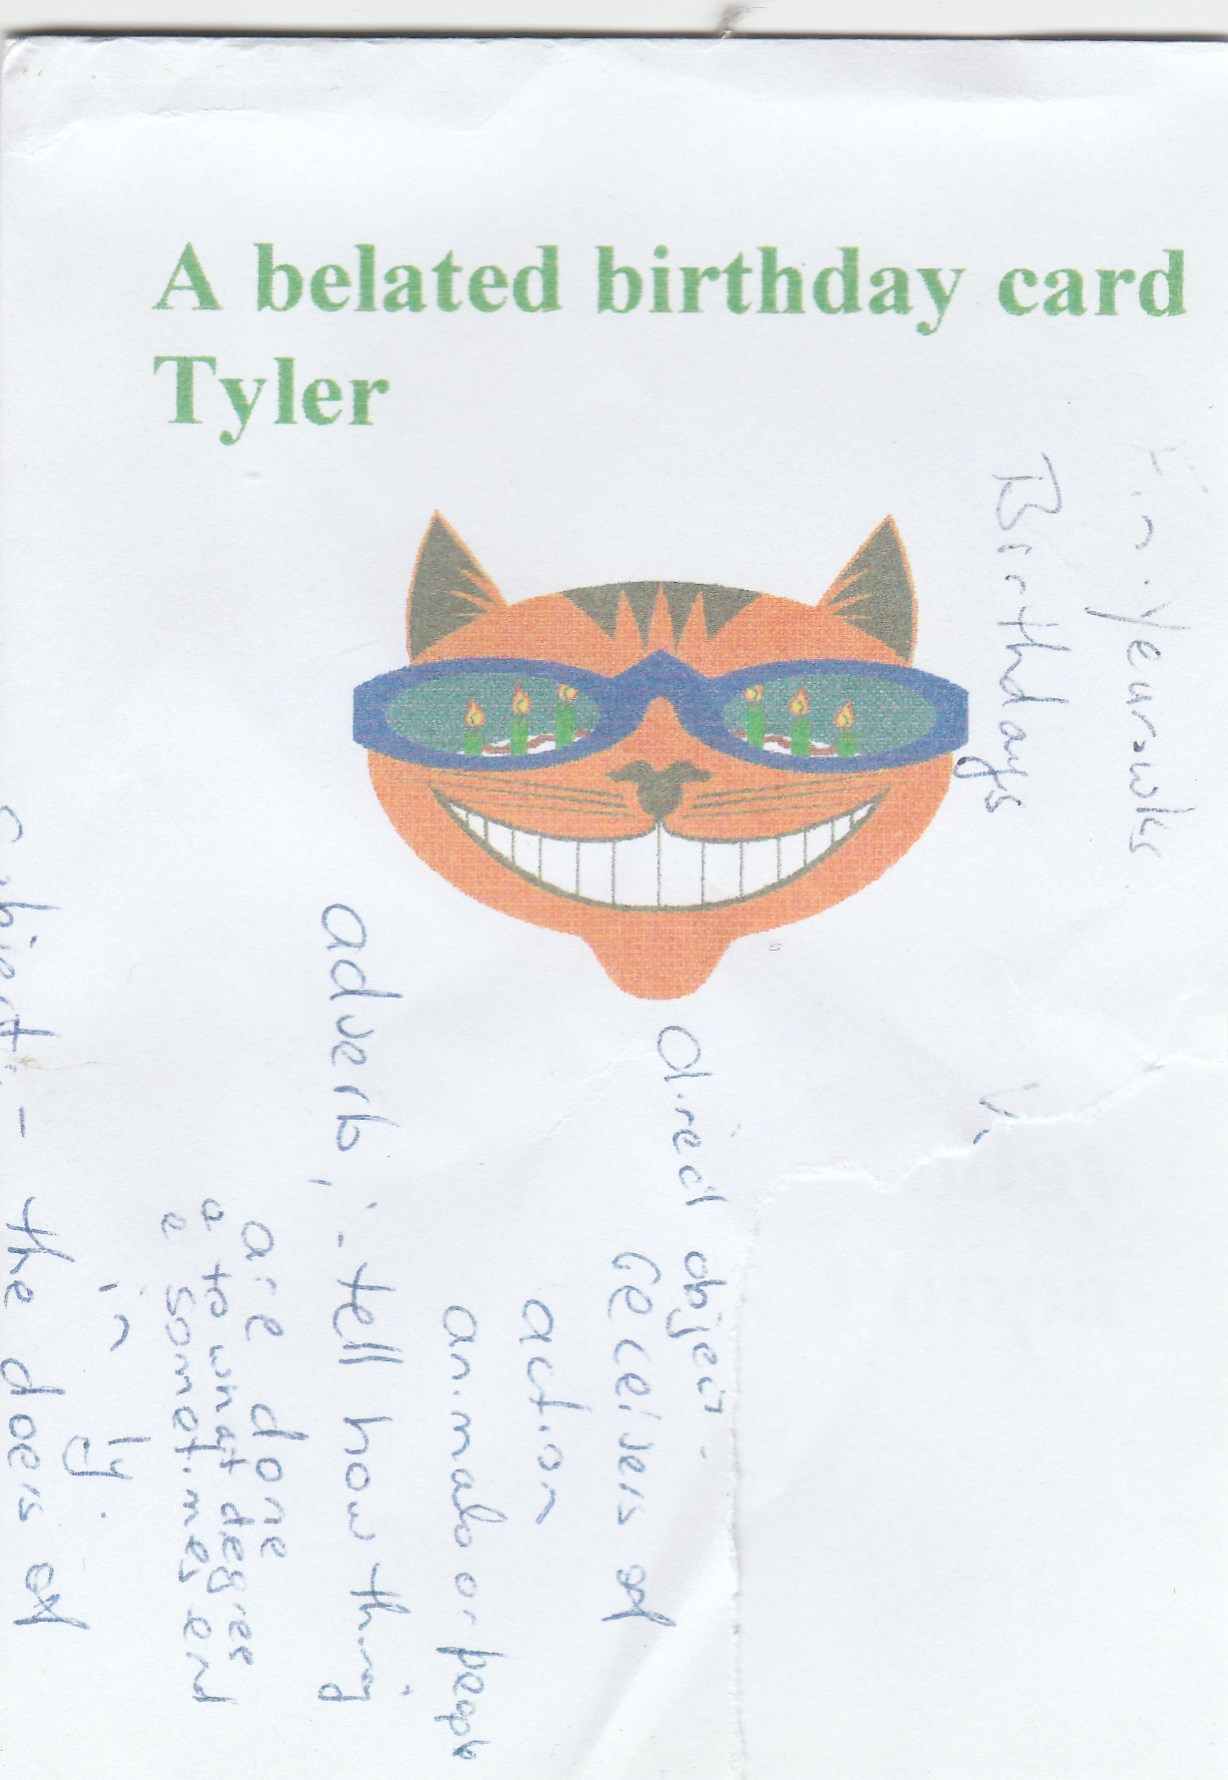 A belated birthday card
Tyler
Birthdays
direct object -
receivers of
action
animals or people
adverb, - tell how thing
are done
a to what degree
e sometimes end
in ly.
subject: - the doers of